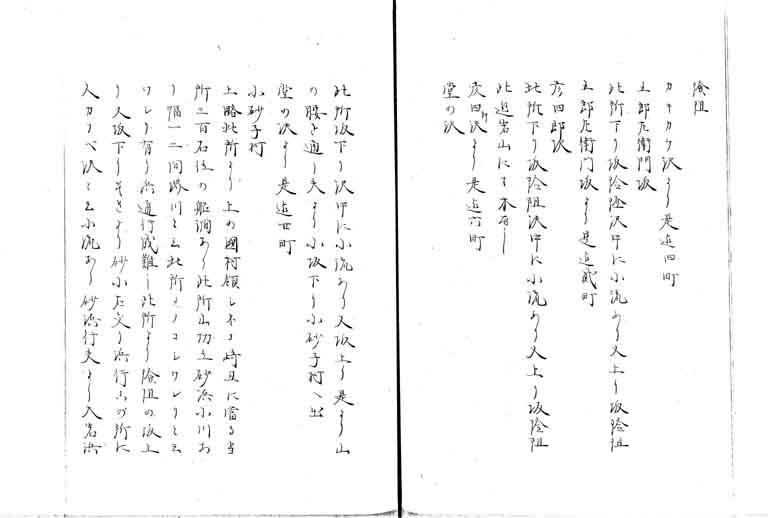 険阻
カキカウ沢より是迄四町
五郎左衛門坂
此所下り坂険阻沢中に小流あり又上り坂険阻
五郎左衛門坂より是迄貳町
彦四郎沢
此所下り坂険阻沢中に小流あり又上り坂険阻
此辺岩山にて木なし
彦四郎沢より是迄六町
堂の沢
此所坂下り沢中に小流あり又坂上り是より山
の腰を通り夫より小坂下り小砂子村へ出
堂の沢より是迄廿町
小砂子村
上略此所より上の国村領シネコ崎丑に当る当
所三百石位の船澗あり此所出切立砂浜小川あ
り幅一二間界川と云此所メノコシワシリと云
ワシリ有り浜通行成難し此所より険阻の坂上
り又坂下りそれより砂小石交り浜行
人カノベ沢と云小流あり砂浜行夫より入岩浜